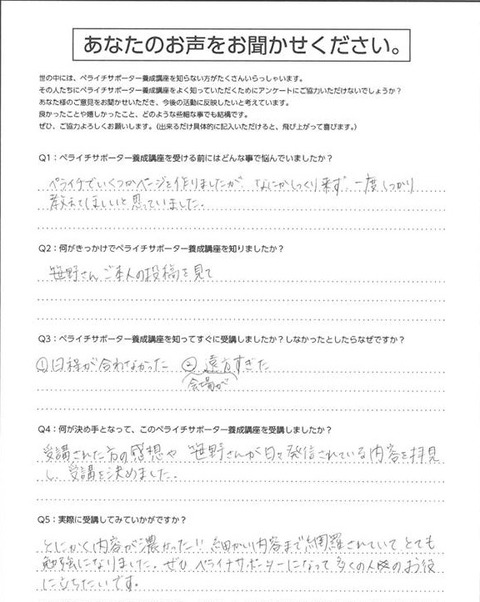 あなたのお声をお聞かせください。
世の中には、ペライチサポーター養成講座を知らない方がたくさんいらっしゃいます。
その人たちにペライチサポーター養成講座をよく知っていただくためにアンケートにご協力いただけないでしょうか?
あなた様のご意見をお聞かせいただき、今後の活動に反映したいと考えています。
良かったことや嬉しかったこと、どのような些細な事でも結構です。
ぜひ、ご協力よろしくお願いします。(出来るだけ具体的に記入いただけると、飛び上がって喜びます。)
Q1:ペライチサポーター養成講座を受ける前にはどんな事で悩んでいましたか?
ペライチでいくつかページを作りましたが、なにかしっくり来ず 一度しっかり
教えてほしいと思っていました。
Q2:何がきっかけでペライチサポーター養成講座を知りましたか?
笹野さんご本人の投稿を見て
Q3:ペライチサポーター養成講座を知ってすぐに受講しましたか?しなかったとしたらなぜですか?
①日程が合わなかった ②遠方すぎた
会場が
Q4:何が決め手となって、このペライチサポーター養成講座を受講しましたか?
受講された方の感想や 笹野さんが日々発信されている内容を拝見
し、受講を決めました。
Q5:実際に受講してみていかがですか?
とにかく内容が濃かった!! 細かい内容まで網羅されていて とても
勉強になりました。ぜひ ペライチサポーターになって 多くの人のお役
に立ちたいです。